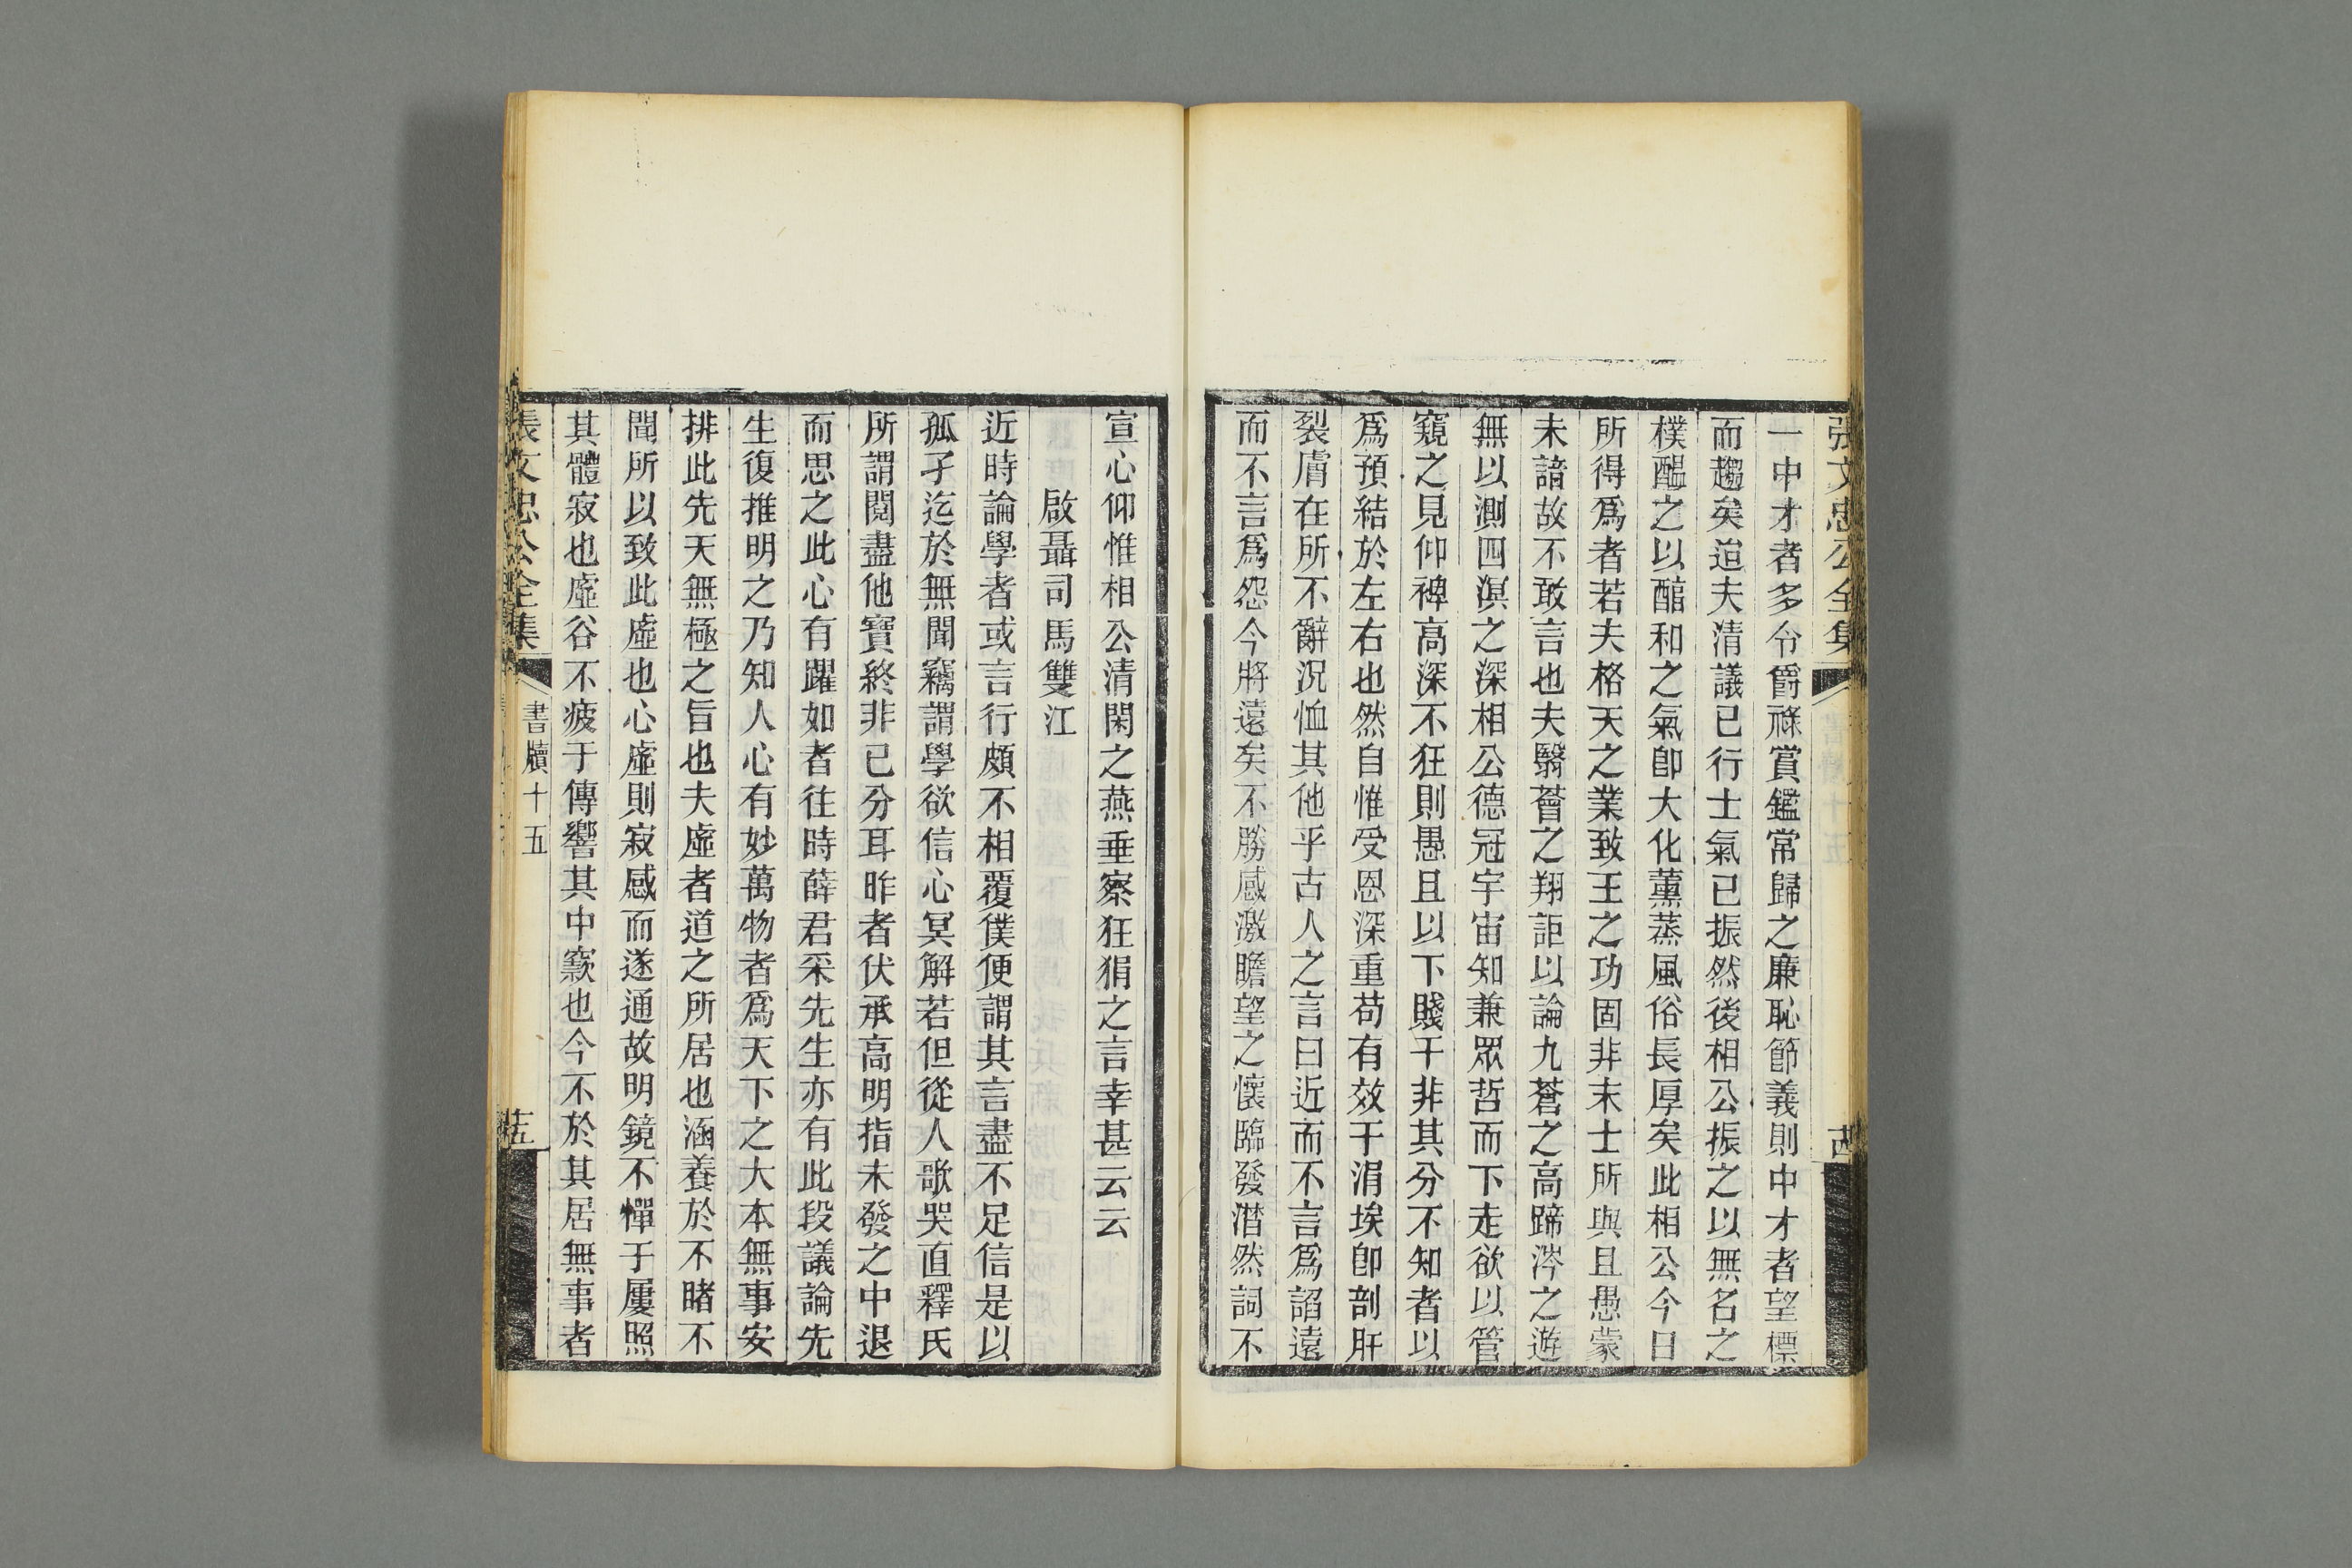 張文忠公全集
一中才者多令爵祿賞鑑常歸之廉恥節義則中才者望標
而趨矣迨夫清議已行士氣已振然後相公振之以無名之
樸醞之以醇和之氣卽大化薰蒸風俗長厚矣此相公今日
所得爲者若夫格天之業致王之功固非末士所與且愚蒙
未諳故不敢言也夫翳薈之翔詎以論九蒼之高蹄涔之遊
無以測四溟之深相公德冠宇宙知兼眾哲而下走欲以管
窺之見仰裨高深不狂則愚且以下賤干非其分不知者以
爲預結於左右也然自惟受恩深重苟有效于涓埃卽剖肝
裂膚在所不辭況恤其他乎古人之言曰近而不言爲諂遠
而不言爲怨今將遠矣不勝感激瞻望之懷臨發潛然詞不
宣心仰惟相公清閑之燕垂察狂狷之言幸甚云云
啟聶司馬雙江
近時論學者或言行頗不相覆僕便謂其言盡不足信是以
孤孑迄於無聞竊謂學欲信心冥解若但從人歌哭直釋氏
所謂閱盡他寶終非已分耳昨者伏承高明指未發之中退
而思之此心有躍如者往時薛君采先生亦有此段議論先
生復推明之乃知人心有妙萬物者爲天下之大本無事安
排此先天無極之旨也夫虛者道之所居也涵養於不睹不
聞所以致此虛也心虛則寂感而遂通故明鏡不憚于屢照
其體寂也虛谷不疲于傳響其中窾也今不於其居無事者
張文忠公全集
書牘十五
十五